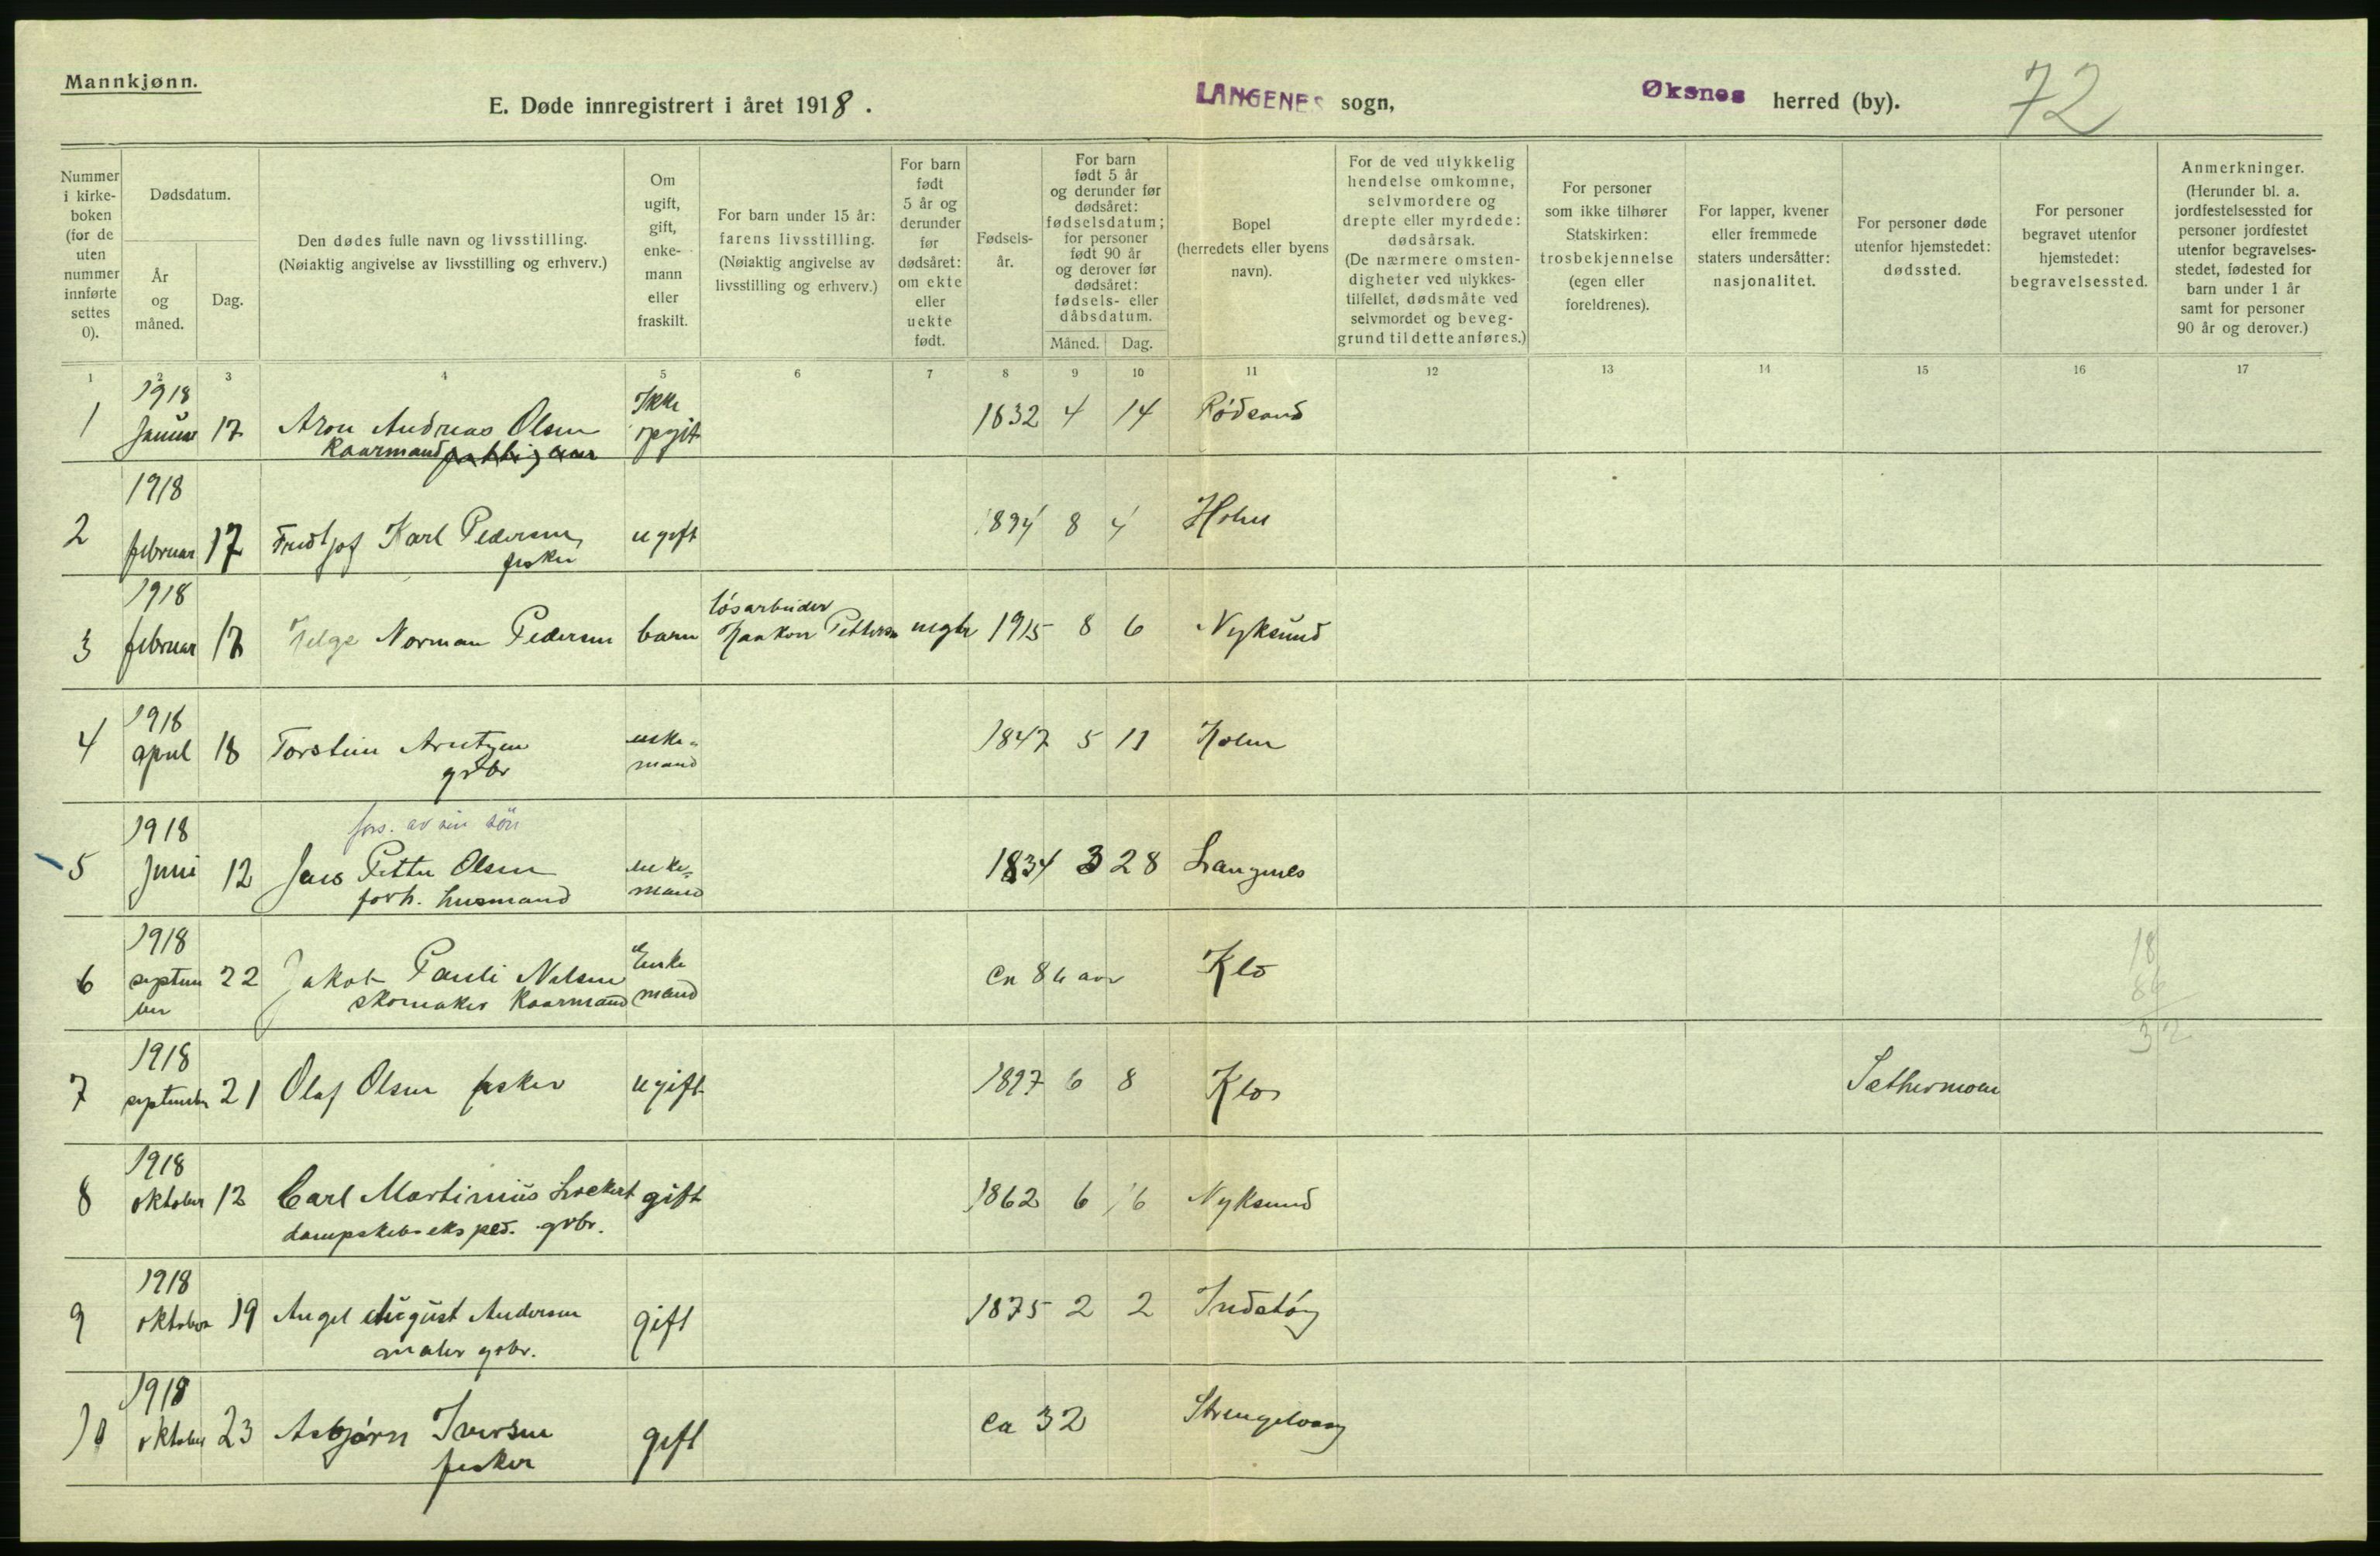 Mannkjønn.
E. Døde innregistrert i året 1918.
LANGENES sogn,
Øksnes herred (by).
72
Nummer i kirke-boken (for de uten nummer innførte settes 0).
Dødsdatum.
År og måned.
Dag.
Den dødes fulle navn og livsstilling.
(Nøiaktig angivelse av livsstilling og erhverv.)
Om ugift, gift, enke-mann eller fraskilt.
For barn under 15 år: farens livsstilling.
(Nøiaktig angivelse av livsstilling og erhverv.)
For barn født 5 år og derunder før dødsåret: om ekte eller uekte født.
Fødsels-år.
For barn født 5 år og derunder før dødsåret: fødselsdatum; for personer født 90 år og derover før dødsåret: fødsels- eller dåbsdatum.
Måned. Dag.
Bopel (herredets eller byens navn).
For de ved ulykkelig hendelse omkomne, selvmordere og drepte eller myrdede: dødsårsak.
(De nærmere omsten-digheter ved ulykkes-tilfellet, dødsmåte ved selvmordet og beveg-grund til dette anføres.)
For personer som ikke tilhører Statskirken: trosbekjennelse (egen eller foreldrenes).
For lapper, kvener eller fremmede staters undersåtter: nasjonalitet.
For personer døde utenfor hjemstedet: dødssted.
For personer begravet utenfor hjemstedet: begravelsessted.
Anmerkninger.
(Herunder bl. a. jordfestelsessted for personer jordfestet utenfor begravelses-stedet, fødested for barn under 1 år samt for personer 90 år og derover.)
1 2 3 4 5 6 7 8 9 10 11 12 13 14 15 16 17
1918 Ikke
1 Januar 17 Aron Andreas Olsen opgit 1832 4 14 Rødsand
Kaarmand
1918
2 februar 17 Fridtjof Karl Pedersen ugift 1894 8 4 Holm
fisker
1918 løsarbeider
3 februar 17 Helge Norman Pedersen barn Haakon Pettersen uegte 1915 8 6 Nyksund
1918
4 april 18 Torstein Arntzen enke-mand 1847 5 11 Holm
grbr
1918 fors. av sin søn
5 juni 12 Jens Petter Olsen enke-mand 1834 3 28 Langnes
forh. husmand
1918
6 september 22 Jakob Pauli Nilsen Enkemand ca 86 aar Klo
skomaker Kaarmand
18
86
32
1918
7 september 21 Olaf Olsen fisker ugift 1897 6 8 Klo Sæthermoen
1918
8 oktober 12 Carl Martinius Lockert gift 1862 6 16 Nyksund
dampskibseksped. grbr.
1918
9 oktober 19 Angel August Andersen gift 1875 2 2 Indstøy
maler grbr.
1918
10 oktober 23 Asbjørn Iversen gift ca 32 Strengelvaag
fisker